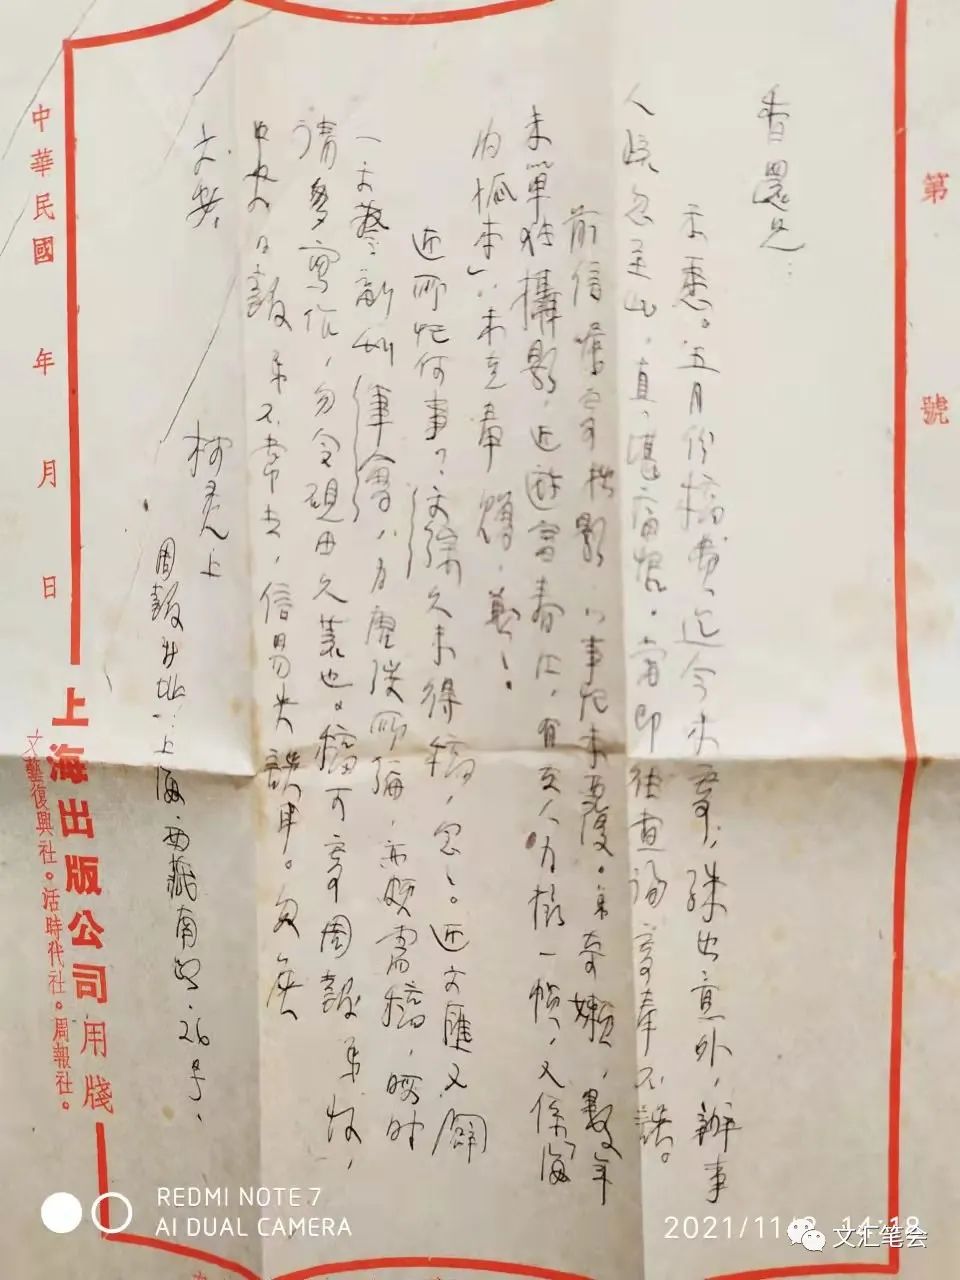 第　號
香還兄：
示悉。五月份稿費，迄今未寄，殊出意外，辦事
人疏忽至此，真堪痛恨。當即往查詢寄奉不誤。
前信囑寄攝影，以事忙未覆。弟奇嬾，數年
未單獨攝影，近遊富春江，有友人为攝一幀，又係「海
内孤本」，未克奉贈，歉！
近所忙何事？久未得稿，念念。近文匯又闢
一文藝新刊筆會，为唐弢所編，亦頗需稿，暇时
請多寫作，勿令硯田久蕪也。稿可寄周報弟收，
中央日報弟不常去，信易失誤耳。匆
文安
柯灵上
周報社址：上海西藏南路26号。
中華民國　年　月　日
上海出版公司用牋
文藝復興社。活時代社。周報社。
REDMI NOTE 7
AI DUAL CAMERA
2021/11/ 14:18
文汇笔会